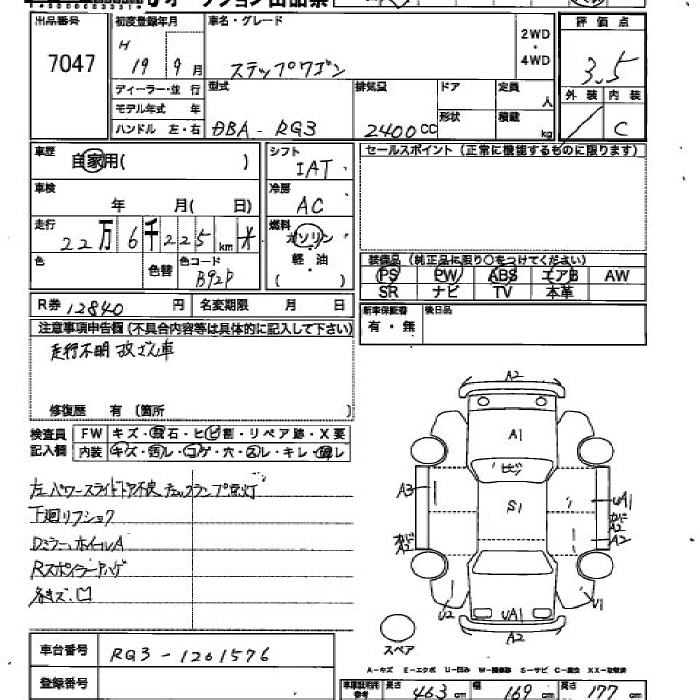 オークション出品票
出品番号 初度登録年月 車名・グレード 2WD・4WD 評価点
7047 H 19 9月 ステップワゴン 3.5
ディーラー・並行 型式 排気量 ドア 定員 人 外装 内装
モデル年式 年 形状 積載 kg
ハンドル 左・右 DBA-RG3 2400cc C
車歴 自家用( ) シフト IAT セールスポイント(正常に機能するものに限ります)
車検 年 月( 日) 冷房 AC
走行 22万6千225km 燃料 ガソリン
色 色替 色コード B92P 軽・油 ( )
装備品(純正品に限り○をつけてください)
PS PW ABS エアB AW
SR ナビ TV 本革
R券 12840円 名変期限 月 日 新車保証書 後日品
有・無
注意事項申告欄(不具合内容等は具体的に記入して下さい)
走行不明
修復歴 有 〔箇所 〕
検査員 FW キズ・飛石・ヒビ割・リペア跡・X要
記入欄 内装 キズ・汚レ・コゲ・穴・スレ・キレ・
左パワースライドドア不良 チェックランプ点灯
下廻リフショク
Dミラー、ホイールA
Rスポイラーハゲ
各キズ・凹
A2
A1
ヒビ
A3 S1 uA1
A2 A2
A2
U2 uA1 U1
A2
スペア
A-キズ E-エクボ U-凹み W-補修跡 S-サビ C-腐食 XX-交換済
車台番号 RG3-1201576
登録番号 長さ 463cm 幅 169cm 高さ 177cm